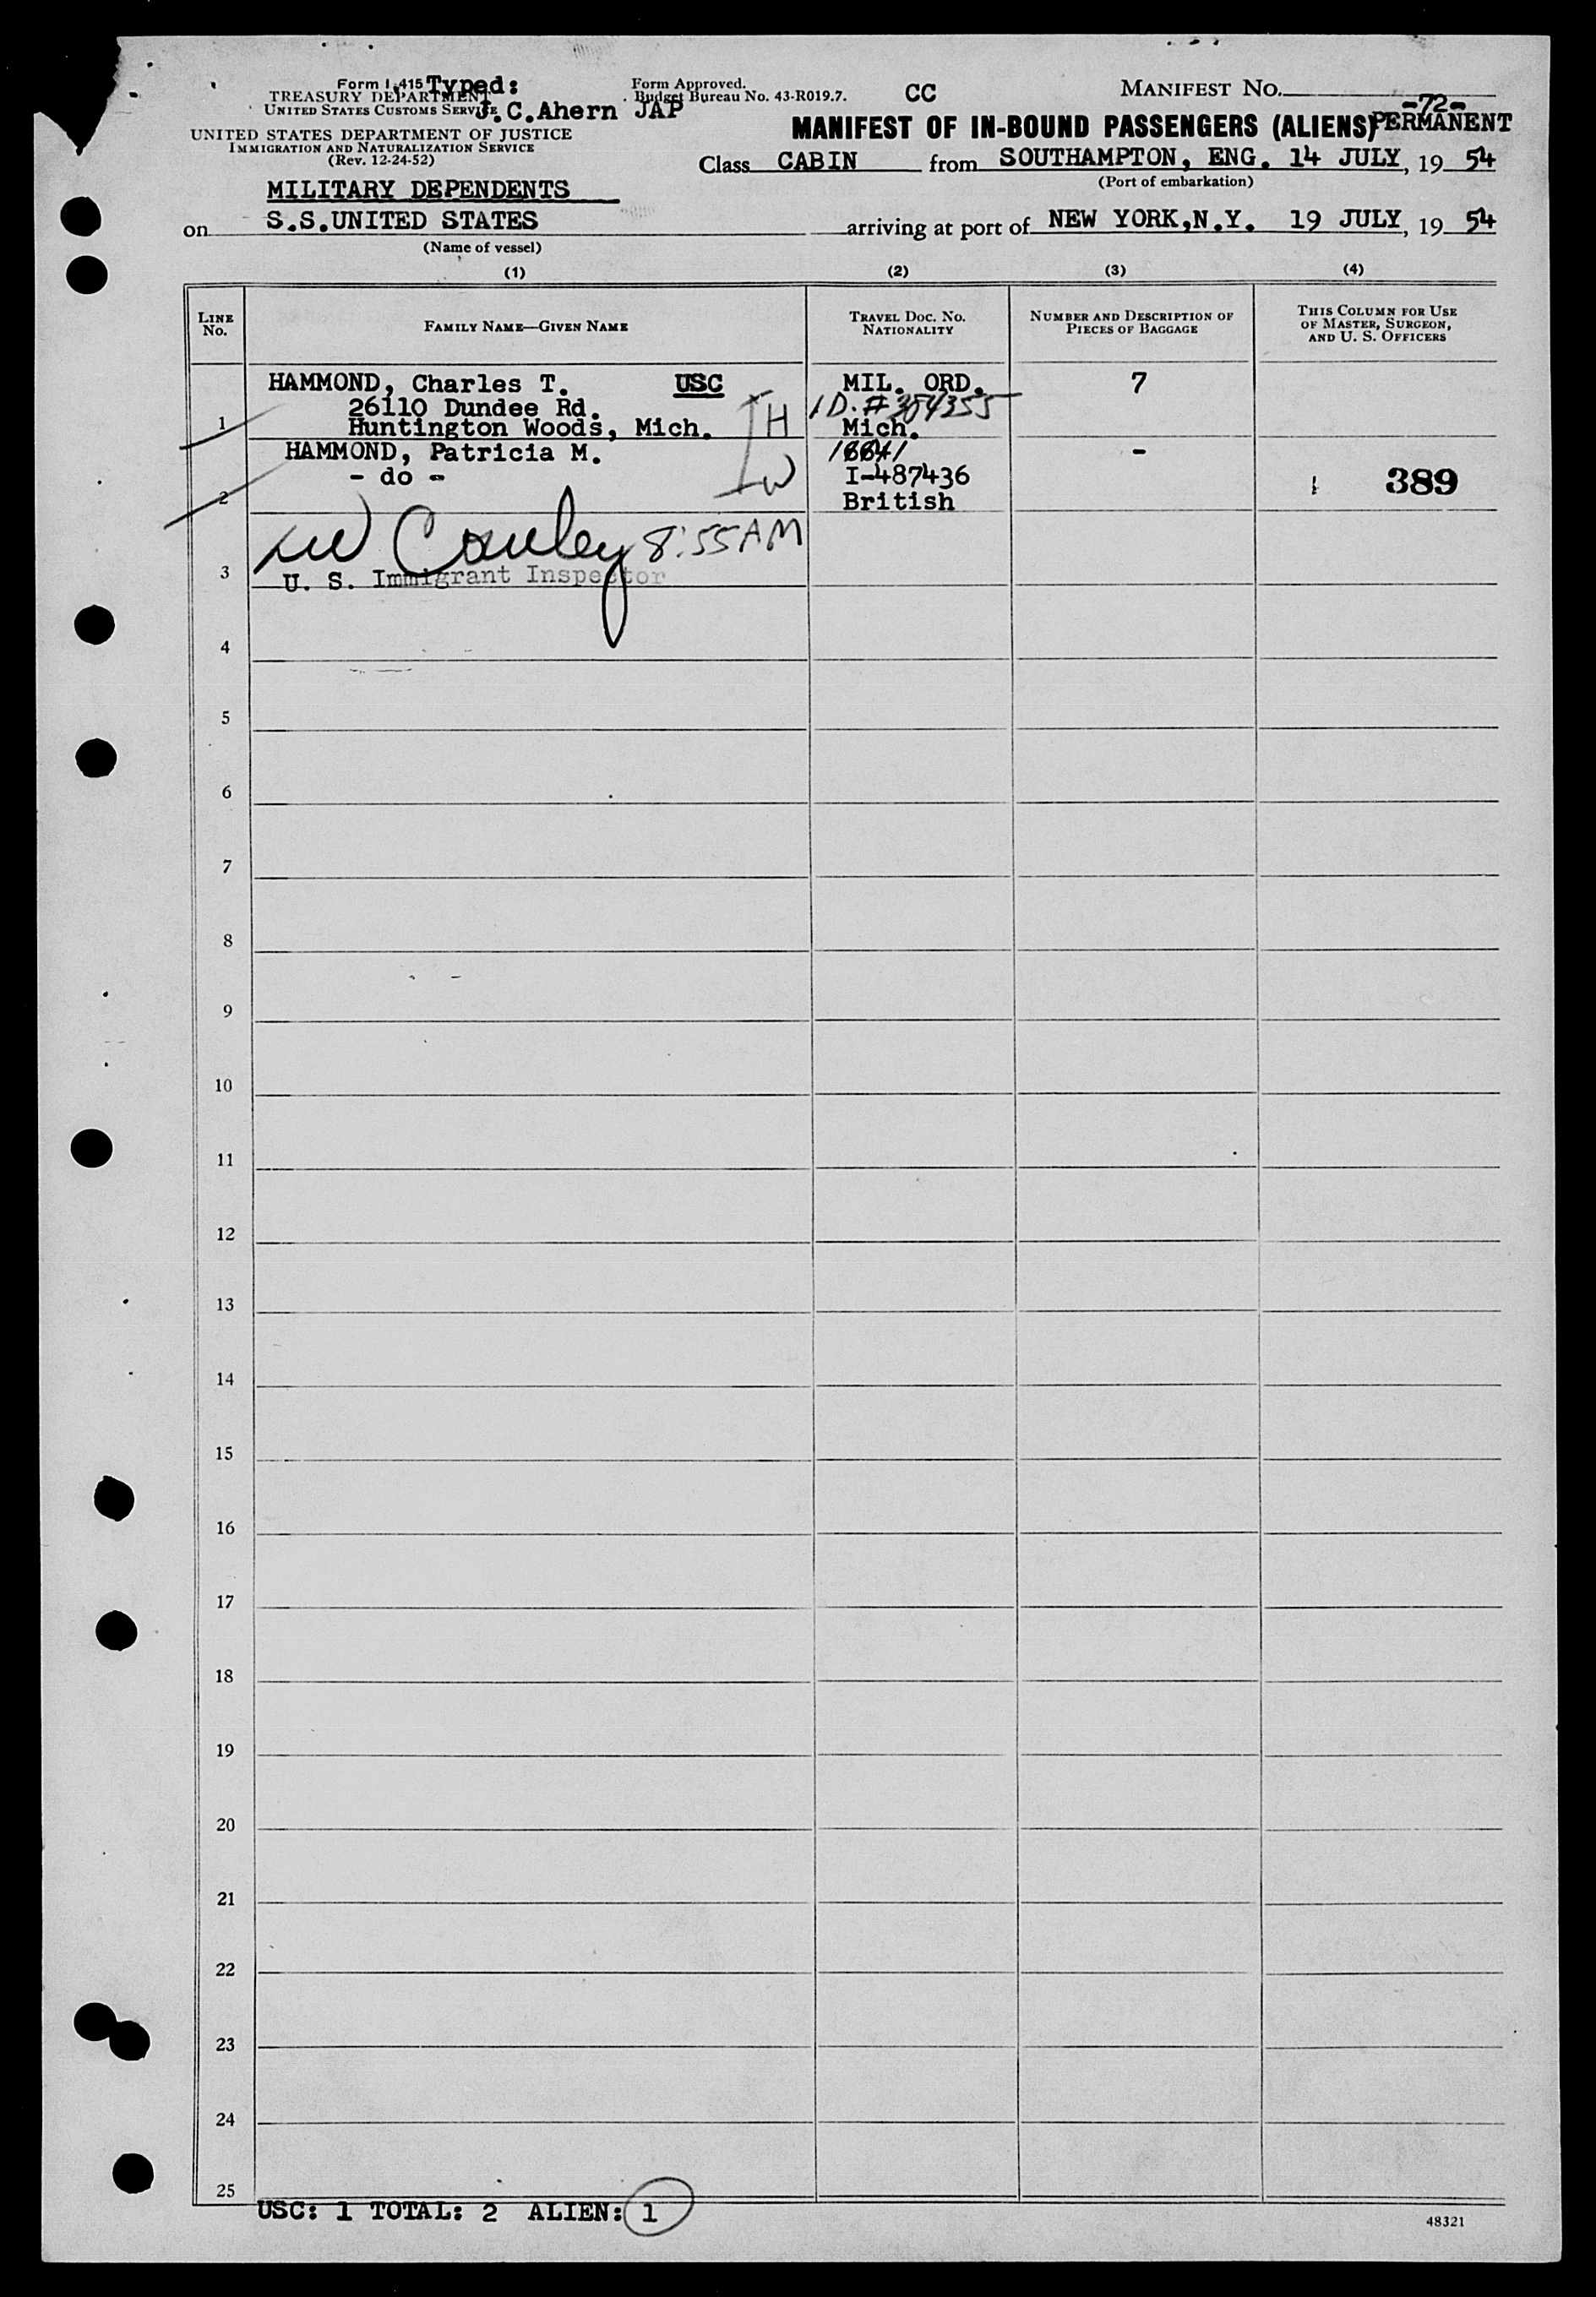 Form I-415 Typed:
TREASURY DEPARTMENT
UNITED STATES CUSTOMS SERVICE J.C.Ahern JAP
Form Approved.
Budget Bureau No. 43-R019.7.
CC
MANIFEST No. -72-
UNITED STATES DEPARTMENT OF JUSTICE
IMMIGRATION AND NATURALIZATION SERVICE
(Rev. 12-24-52)
MANIFEST OF IN-BOUND PASSENGERS (ALIENS) PERMANENT
Class CABIN from SOUTHAMPTON, ENG. 14 JULY, 19 54
(Port of embarkation)
MILITARY DEPENDENTS
on S.S.UNITED STATES arriving at port of NEW YORK,N.Y. 19 JULY, 19 54
(Name of vessel)
(1) (2) (3) (4)
LINE No. FAMILY NAME—GIVEN NAME TRAVEL DOC. No. NATIONALITY NUMBER AND DESCRIPTION OF PIECES OF BAGGAGE THIS COLUMN FOR USE OF MASTER, SURGEON, AND U. S. OFFICERS
HAMMOND, Charles T. USC MIL. ORD. 7
26110 Dundee Rd. I.D.#
1 Huntington Woods, Mich. H Mich.
HAMMOND, Patricia M. -
- do - W I-487436 389
2 British
8:55AM
3 U. S. Immigrant Inspector
4
5
6
7
8
9
10
11
12
13
14
15
16
17
18
19
20
21
22
23
24
25
USC: 1 TOTAL: 2 ALIEN: 1
48321